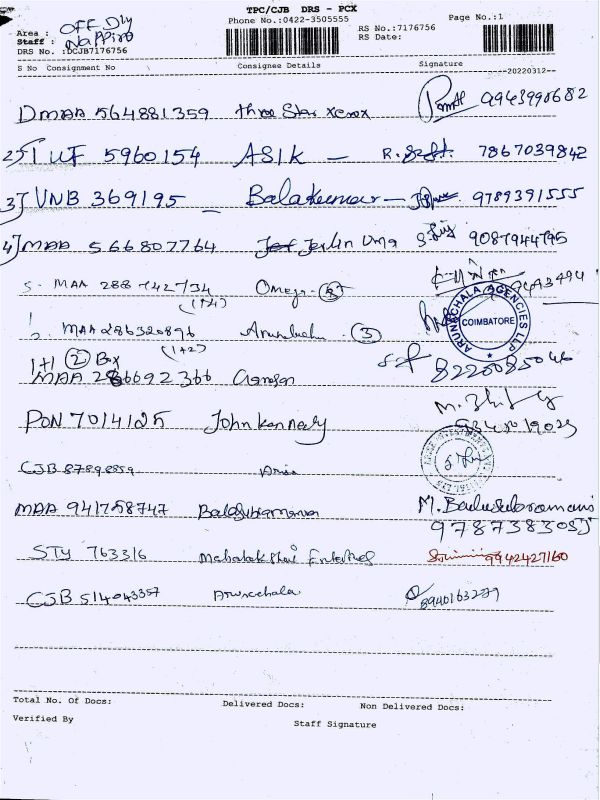 TPC/CJB DRS - PCX
Phone No.:0422-3505555 Page No.:1
Area : OFF Dly
Staff :
DRS No. :DCJB7176756
RS No.:7176756
RS Date:
S No Consignment No Consignee Details Signature
20220312
1) MAA 564881359 three Star xerox 9943990682
2) IUF 5960154 ASIK - 7867039842
3) VNB 369195 - Balakumar - 9789391555
4) MAA 566807764 Jerlin Uma 9087944795
5. MAA 288742734 Omega
(1+4)
MAA 286320896 Arunachala (3)
(1+2)
ARUNACHALA AGENCIES LLP
COIMBATORE
1+1 (2) Box
MAA 286692366 Ganesan 8220085046
PON 7014125 John kennedy
CJB 87898859
MAA 941758747 Balasubramanian M. Balasubramani
9787383055
STY 763316 Mahalakshmi Enterprises 9942427160
CJB 514043357 Arunachala 8940163277
Total No. Of Docs: Delivered Docs: Non Delivered Docs:
Verified By Staff Signature